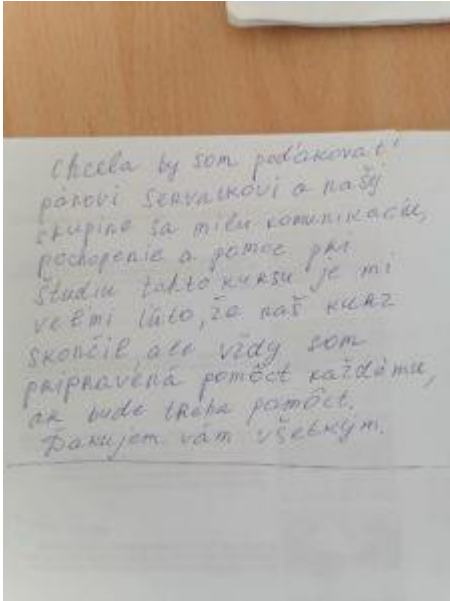 Chcela by som poďakovať
pánovi Servatkovi a našy
skupine sa milu komunikaciu,
pochopenie a pomoc pri
študiu tohto kursu je mi
veľmi ľúto, že naš kurz
skončil, ale vždy som
pripravená pomôct každému,
ak bude treba pomôct.
Ďakujem vám všetkým.